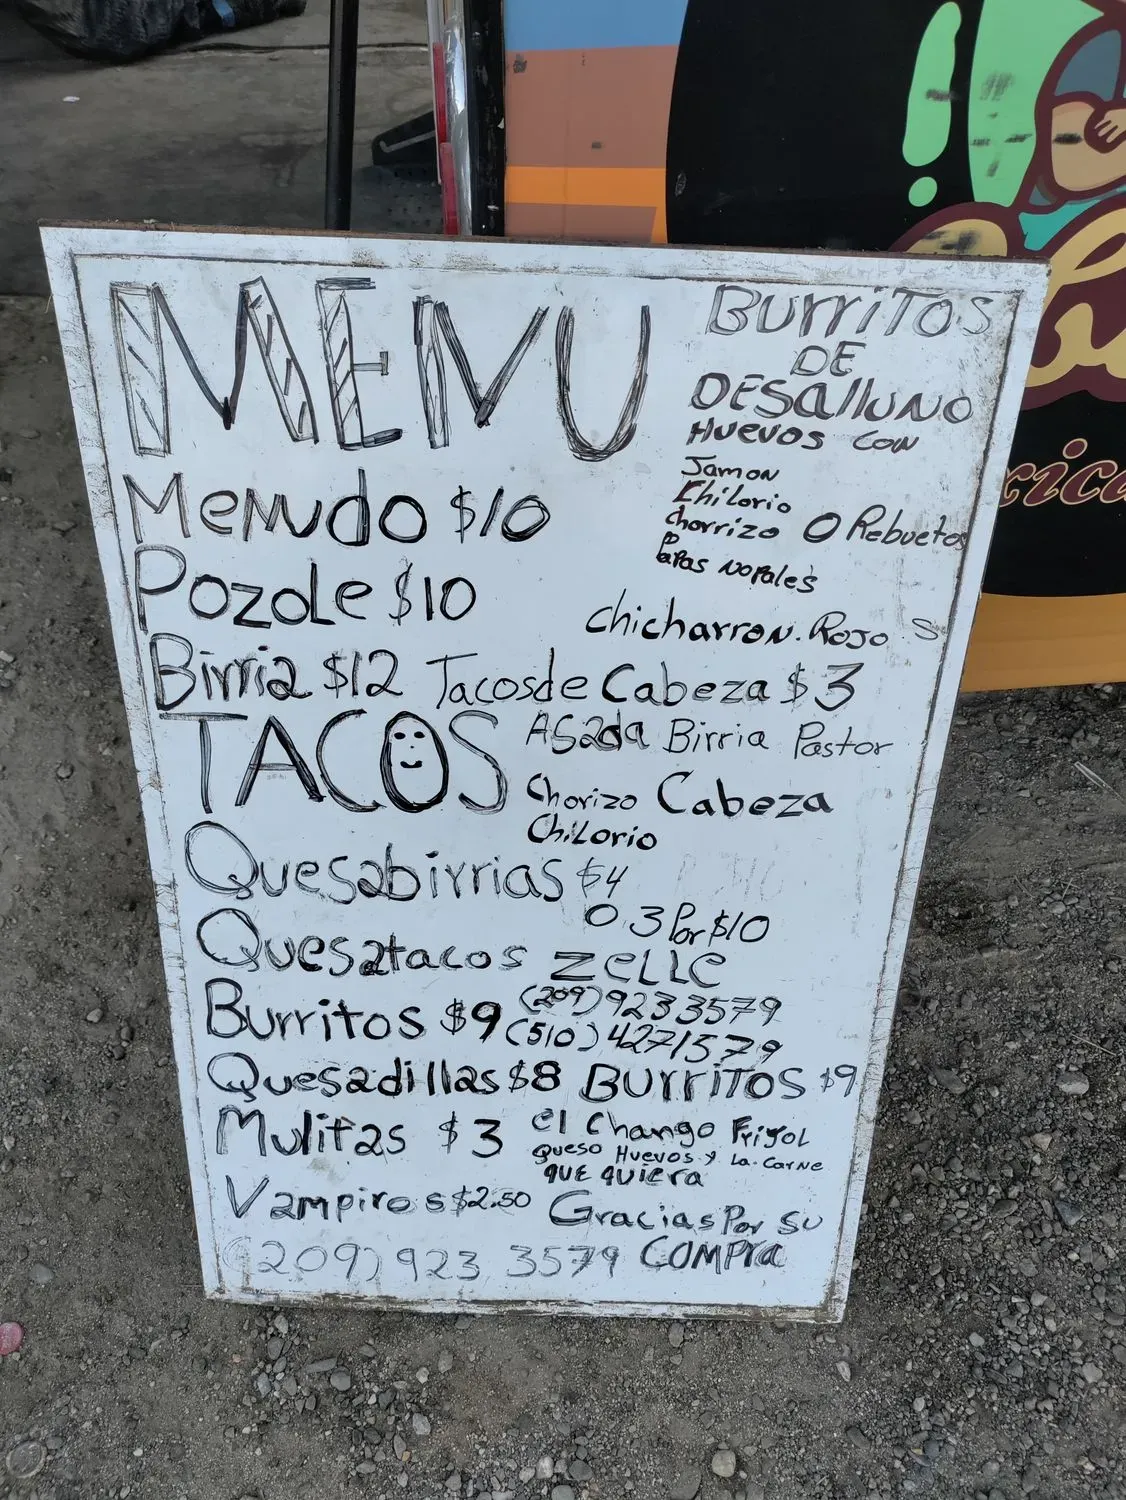 MENU
BUrriTOS
DE
DESAllUNO
HUEVOS CON
Jamon
Chilorio
chorrizo O Rebuetos
Papas Nopales
Chicharron. Rojo S
Menudo $10
Pozole $10
Birria $12 Tacos de Cabeza $3
TACOS
Asada Birria Pastor
Chorizo Cabeza
Chilorio
Quesabirrias $4
O 3 Por $10
Quesatacos Zelle
(209) 923 3579
Burritos $9 (510) 4271579
Quesadillas $8 BUrriTOS $9
Mulitas $3 el Chango Frijol
Queso Huevos y La. Carne
que quiera
Vampiros $2.50 Gracias Por Su
(209) 923 3579 COMPra
rica